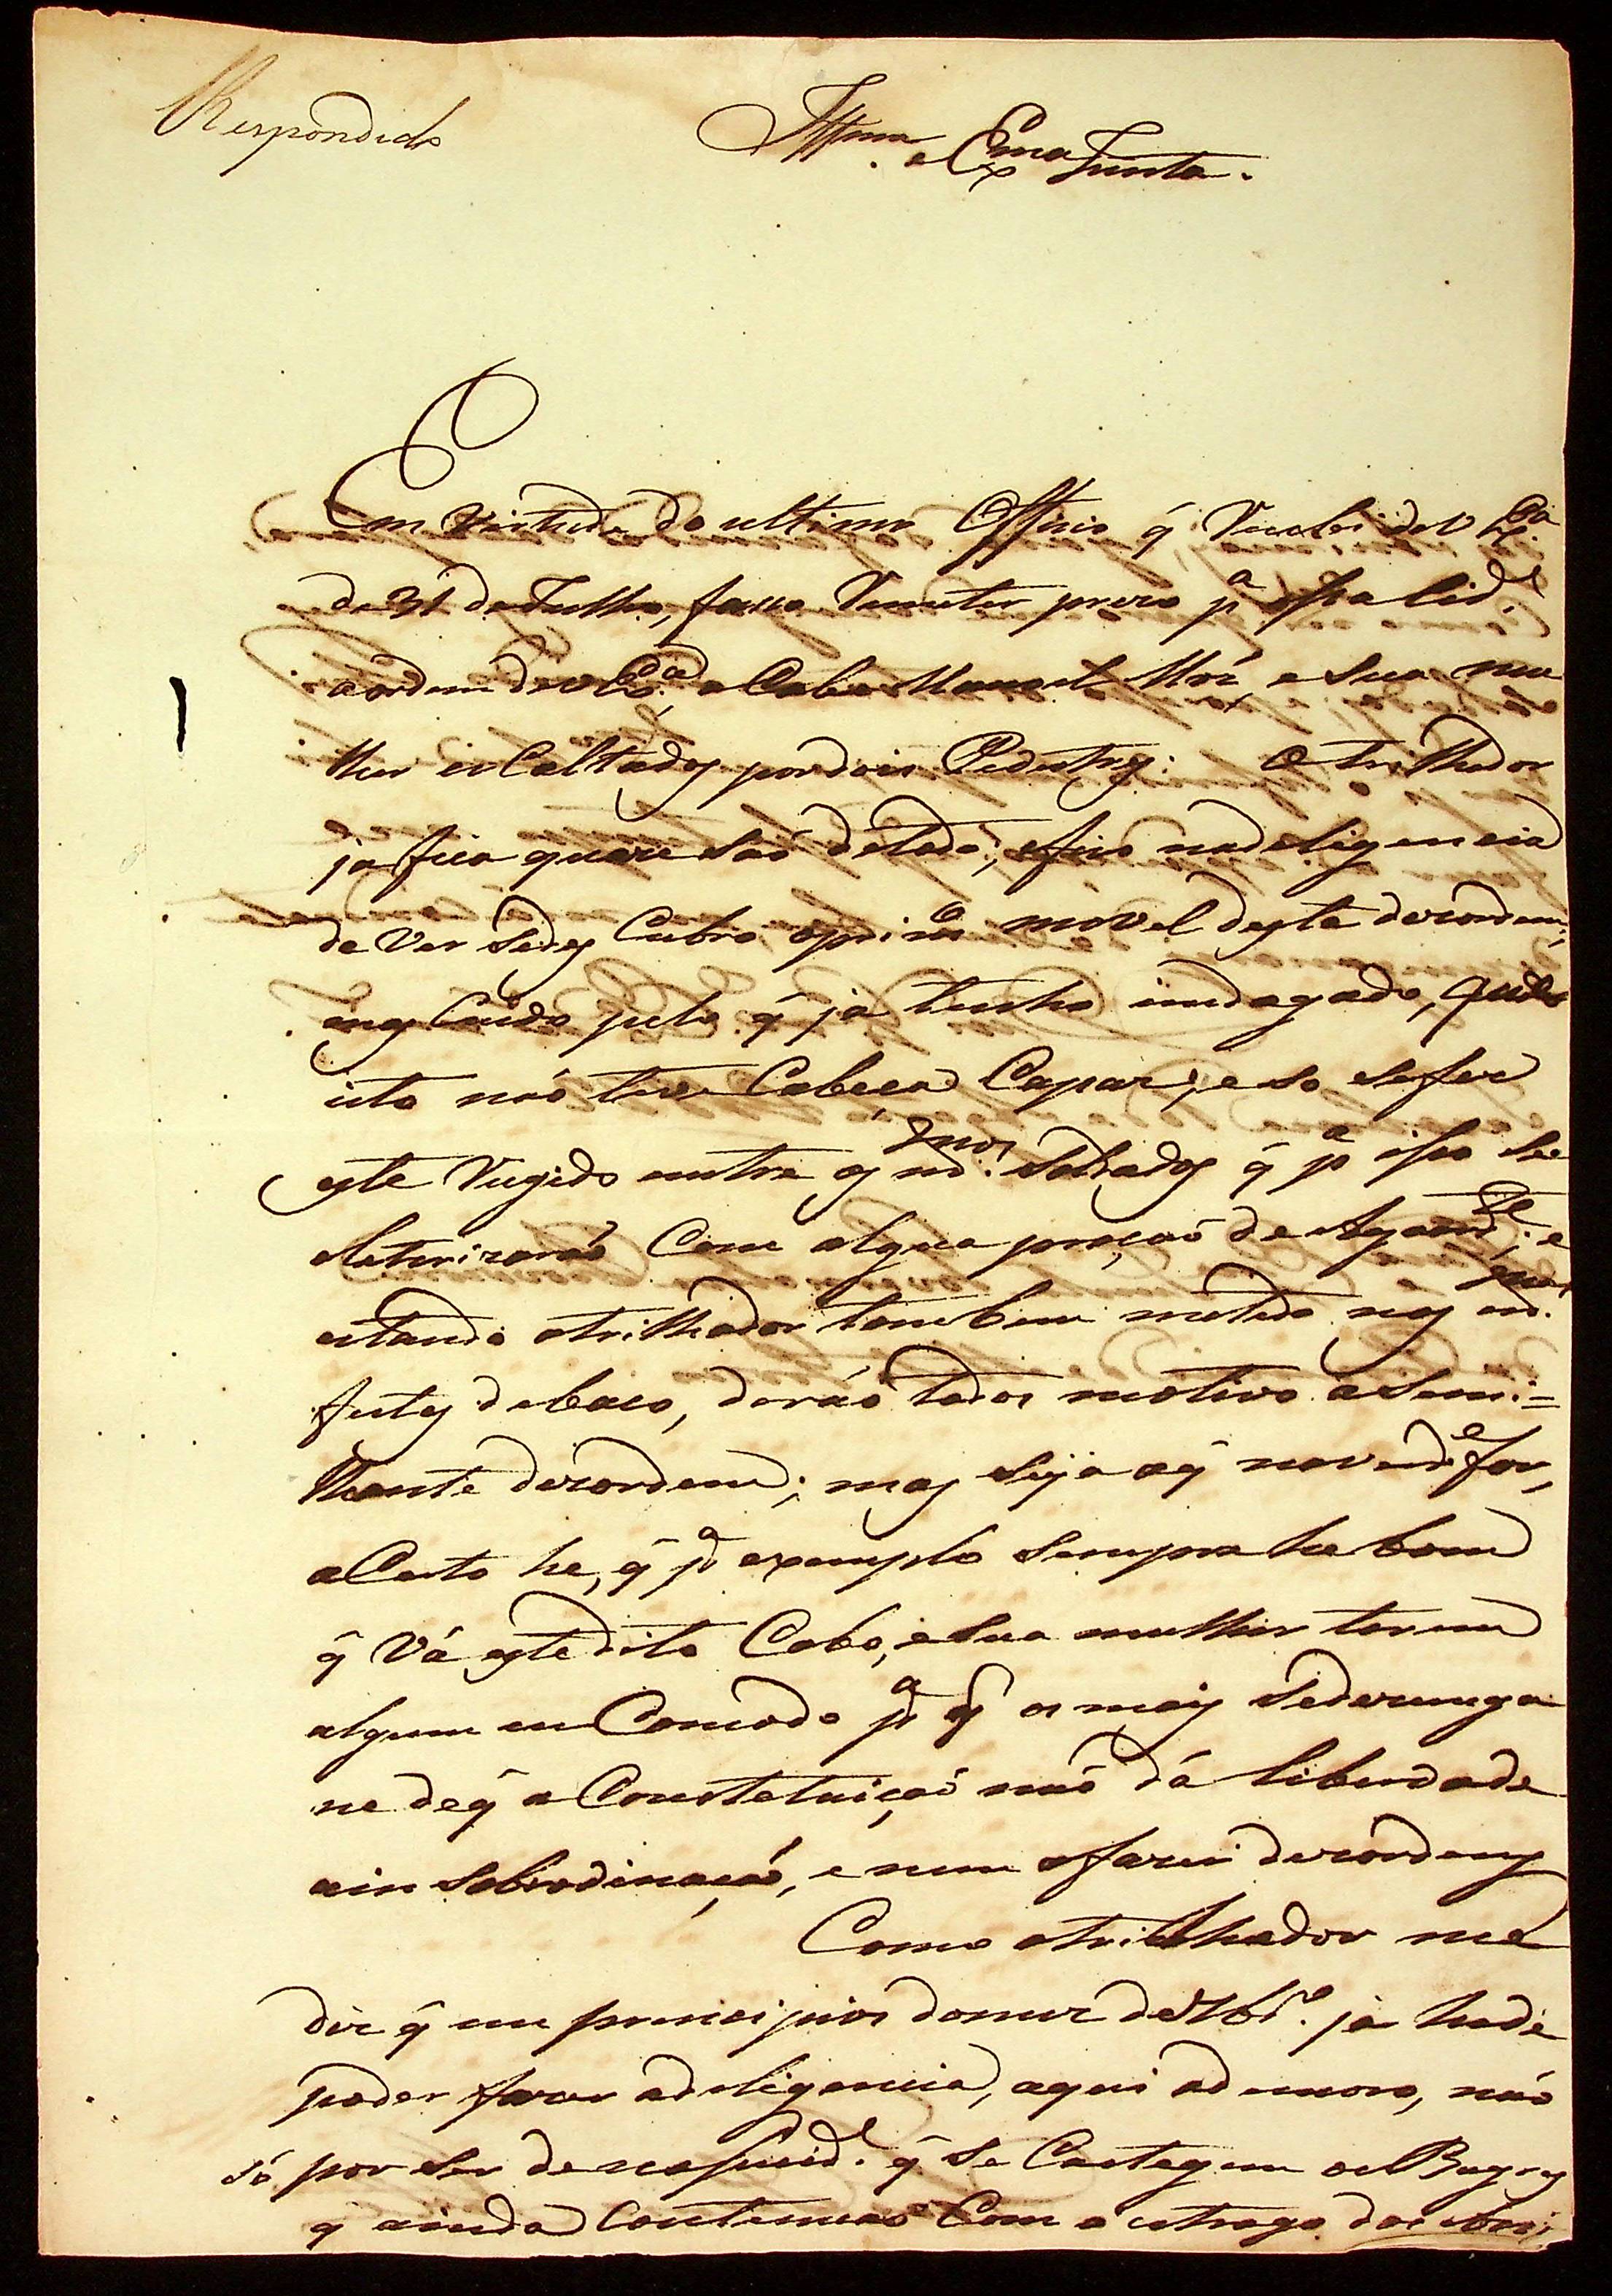 Respondido
Illma. e Exma Junta.
Em virtude do ultimo Officio q̃ Recebi de V. Exa.
de 31 de Julho, faço Remeter prezo pa. essa Cide.
a ordem de V. Exa. o Cabo Manoel , e sua mu
lher es Coltados por dois Pedestres: O trilhador
ja fica quaze saõ de todo, e fico na deligencia
de ver se des Cubro o primo. movel desta dezordem,
pelo q̃ ja tenho indagado, q̃ tudo
isto naõ teve Cabeça Capaz; e so se fez
este Rugido entre os mmos. Soldados q̃ pa. isso se
eleterizaraõ Com algũa porçaõ de Agoardte.; e
estando o trilhador tambem metido nos mmos.
festes de baco, deraõ todos motivo a Semi=
lhante dezordem; mas seja o q̃ na verde. for,
o Certo he, q̃ pa. exemplo sempre he bom
q̃ Vá este dito Cabo, e sua mulher terem
algum en Comodo pa. q̃ os mais se dezenga
ne de q̃ a Constetuiçaõ naõ dá liberdade
a in Sobordinaçaõ, e nem a fazer dezordens
Como o trilhador me
diz q̃ em principios do mez de 7bro. ja hade
poder fazer a deligencia, aqui a demoro, naõ
só por ser de nesecide. q̃ se Casteguem os Bugres
q̃ ainda Contenuaõ Com o estrago dos